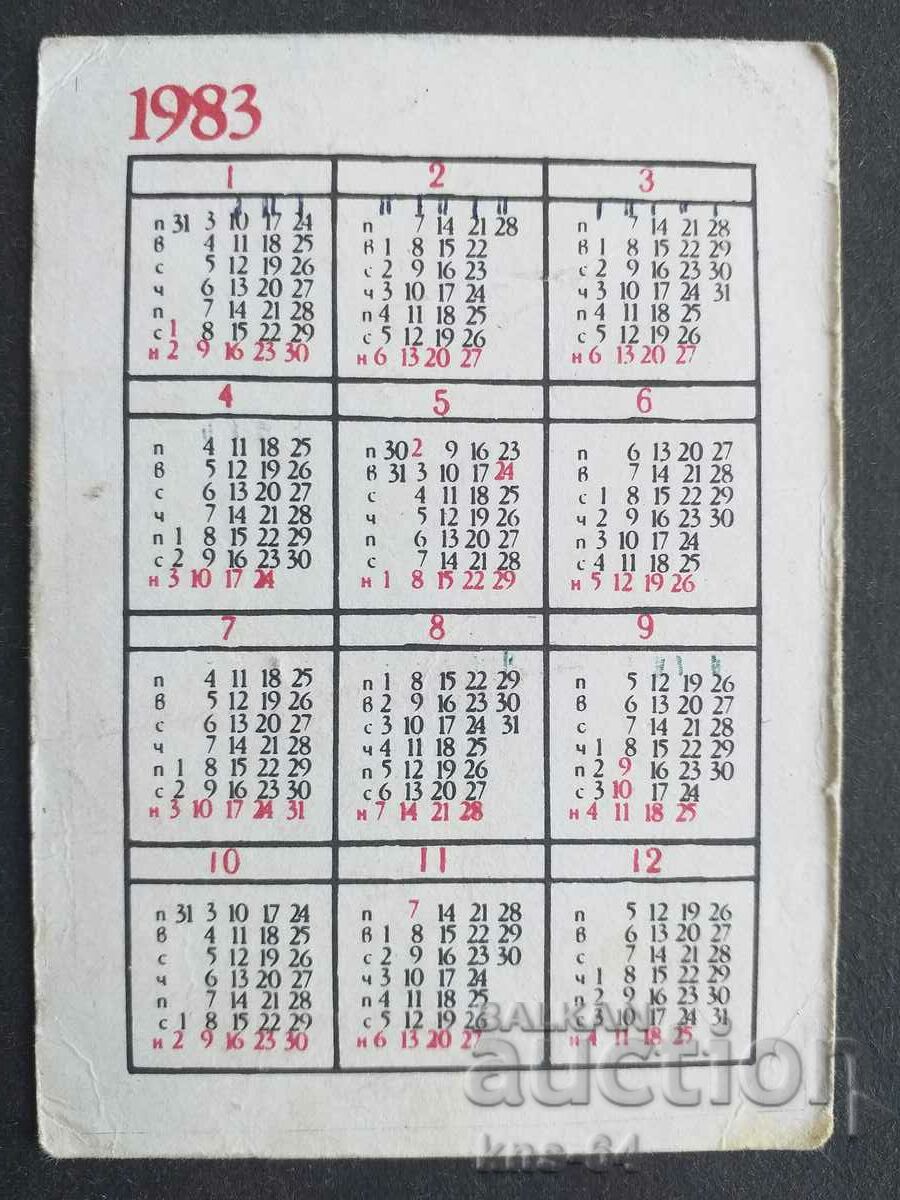 1983
1 2 3
п 31 3 10 17 24
в 4 11 18 25
с 5 12 19 26
ч 6 13 20 27
п 7 14 21 28
с 1 8 15 22 29
н 2 9 16 23 30
п 7 14 21 28
в 1 8 15 22
с 2 9 16 23
ч 3 10 17 24
п 4 11 18 25
с 5 12 19 26
н 6 13 20 27
п 7 14 21 28
в 1 8 15 22 29
с 2 9 16 23 30
ч 3 10 17 24 31
п 4 11 18 25
с 5 12 19 26
н 6 13 20 27
4 5 6
п 4 11 18 25
в 5 12 19 26
с 6 13 20 27
ч 7 14 21 28
п 1 8 15 22 29
с 2 9 16 23 30
н 3 10 17 24
п 30 2 9 16 23
в 31 3 10 17 24
с 4 11 18 25
ч 5 12 19 26
п 6 13 20 27
с 7 14 21 28
н 1 8 15 22 29
п 6 13 20 27
в 7 14 21 28
с 1 8 15 22 29
ч 2 9 16 23 30
п 3 10 17 24
с 4 11 18 25
н 5 12 19 26
7 8 9
п 4 11 18 25
в 5 12 19 26
с 6 13 20 27
ч 7 14 21 28
п 1 8 15 22 29
с 2 9 16 23 30
н 3 10 17 24 31
п 1 8 15 22 29
в 2 9 16 23 30
с 3 10 17 24 31
ч 4 11 18 25
п 5 12 19 26
с 6 13 20 27
н 7 14 21 28
п 5 12 19 26
в 6 13 20 27
с 7 14 21 28
ч 1 8 15 22 29
п 2 9 16 23 30
с 3 10 17 24
н 4 11 18 25
10 11 12
п 31 3 10 17 24
в 4 11 18 25
с 5 12 19 26
ч 6 13 20 27
п 7 14 21 28
с 1 8 15 22 29
н 2 9 16 23 30
п 7 14 21 28
в 1 8 15 22 29
с 2 9 16 23 30
ч 3 10 17 24
п 4 11 18 25
с 5 12 19 26
н 6 13 20 27
п 5 12 19 26
в 6 13 20 27
с 7 14 21 28
ч 1 8 15 22 29
п 2 9 16 23 30
с 3 10 17 24 31
н 4 11 18 25
BALKAN
auction
kns-64